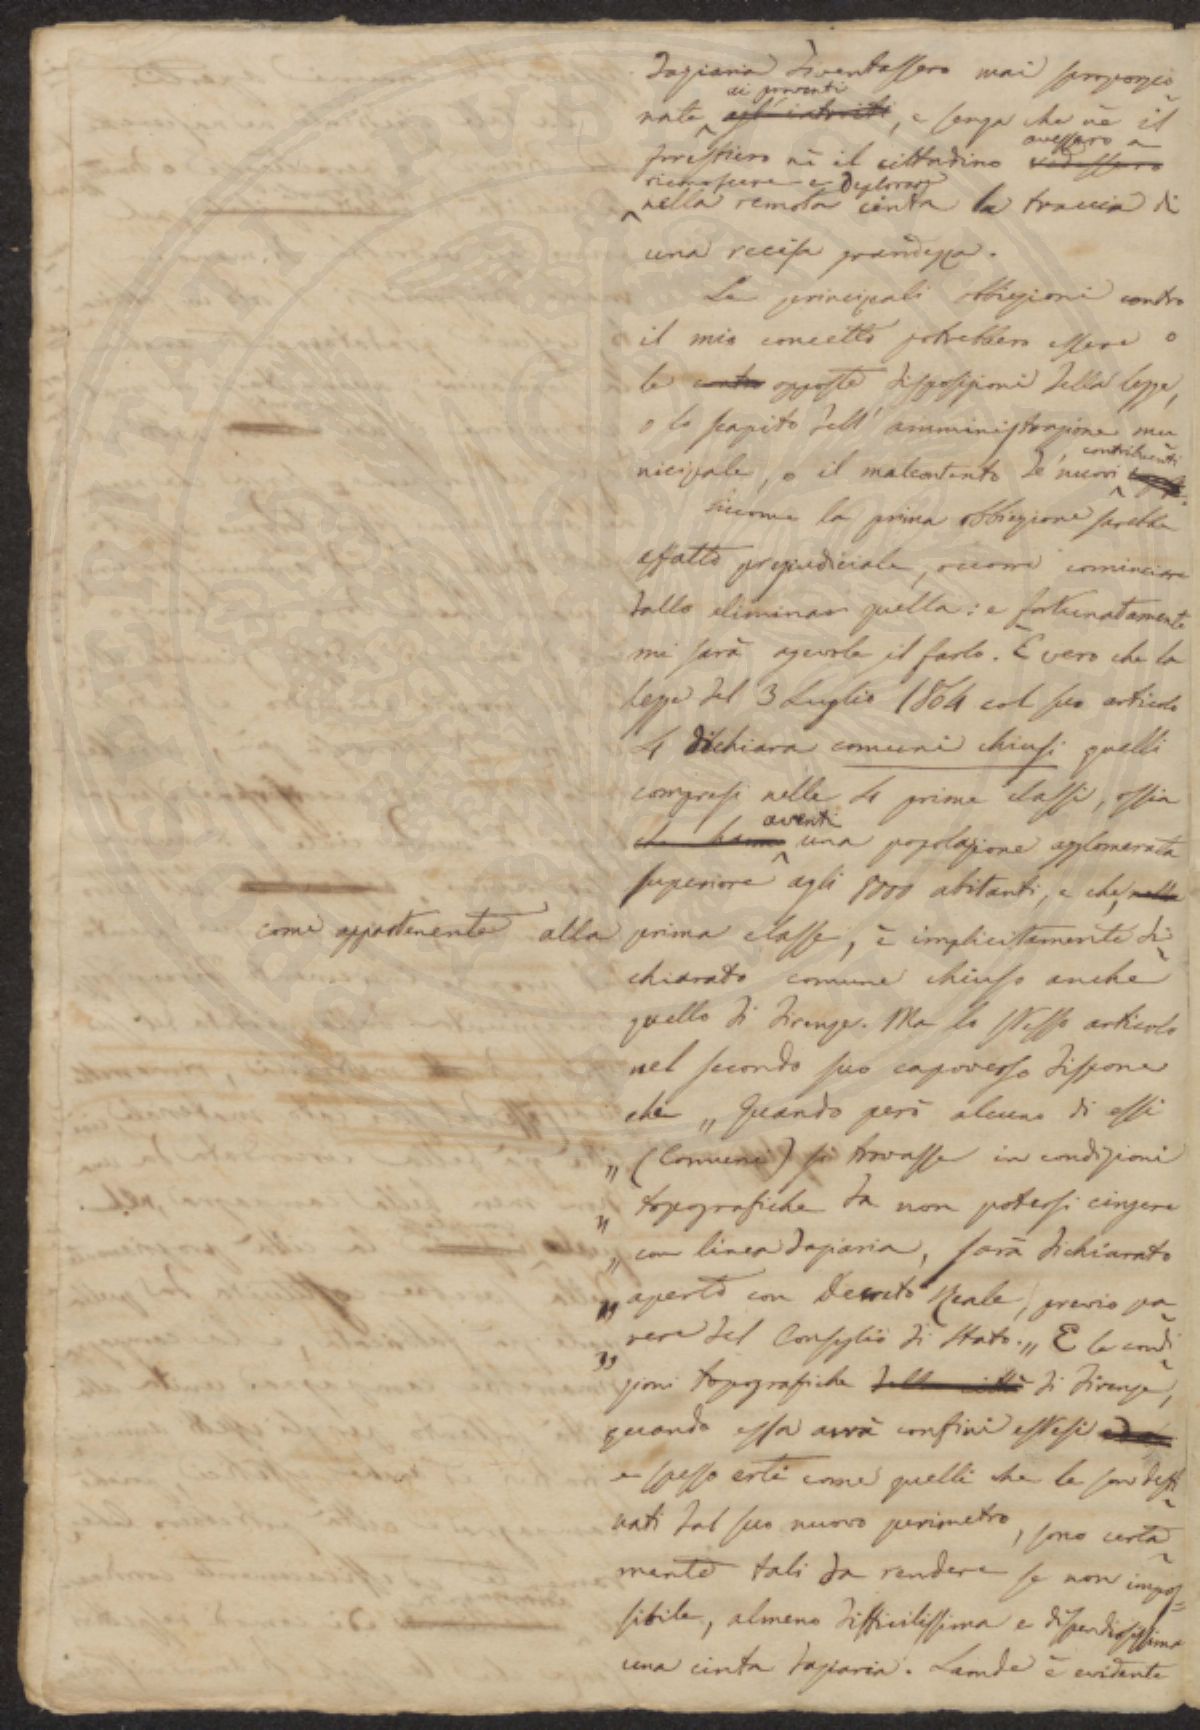 daziaria diventassero mai sproporzio
nate ai proventi agl'introiti, e senza che nè il
forestiero nè il cittadino avessero a vedessero
riconoscere e deplorare
nella remota cinta la traccia di
una recisa grandezza.
Le principali obbiezioni contro
il mio concetto potrebbero essere o
le contro opposte disposizioni della legge,
o lo scapito dell'amministrazione mu
nicipale, o il malcontento de' nuovi contribuenti
Siccome la prima obbiezione sarebbe
affatto pregiudiciale, occorre cominciare
dallo eliminar quella: e fortunatamente
mi sarà agevole il farlo. È vero che la
legge del 3 Luglio 1864 col suo articolo
4 dichiara comuni chiusi quelli
compresi nelle 4 prime classi, ossia
che hanno aventi una popolazione agglomerata
superiore agli 8000 abitanti, e che, nella
come appartenente alla prima classe, è implicitamente di
chiarato comune chiuso anche
quello di Firenze. Ma lo stesso articolo
nel secondo suo capoverso dispone
che „ Quando però alcuno di essi
„ (Comuni) si trovasse in condizioni
„ topografiche da non potersi cingere
„ con linea daziaria, sarà dichiarato
„ aperto con Decreto Reale, previo pa
„ rere del Consiglio di Stato. „ E le condi
zioni topografiche della città di Firenze,
quando essa avrà confini estesi
e spesso erti come quelli che le son desti
nati dal suo nuovo perimetro, sono certa
mente tali da rendere se non impos=
sibile, almeno difficilissima e dispendiosissima
una cinta daziaria. Laonde è evidente